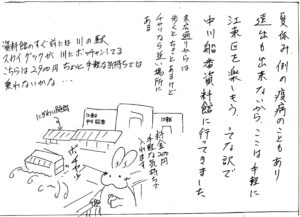 夏休み、例の病のこともあり
遠出も出来ないから、ここは手軽に
江東区を楽しもう。ってな訳で
中川船番資料館に行ってきました
大通りからは
歩くとちょとあるけど
チャリなら近い場所に
ある
資料館のすぐ前には 川の駅
スカイダックが 川にボッチャンしてる
こちらは2900円 ちょと手軽な気持ちでは
乗れないかな…
にぎわい施設
江東区
中川船番
ボッチャン
料金200円
手軽な気持ちで
入れます